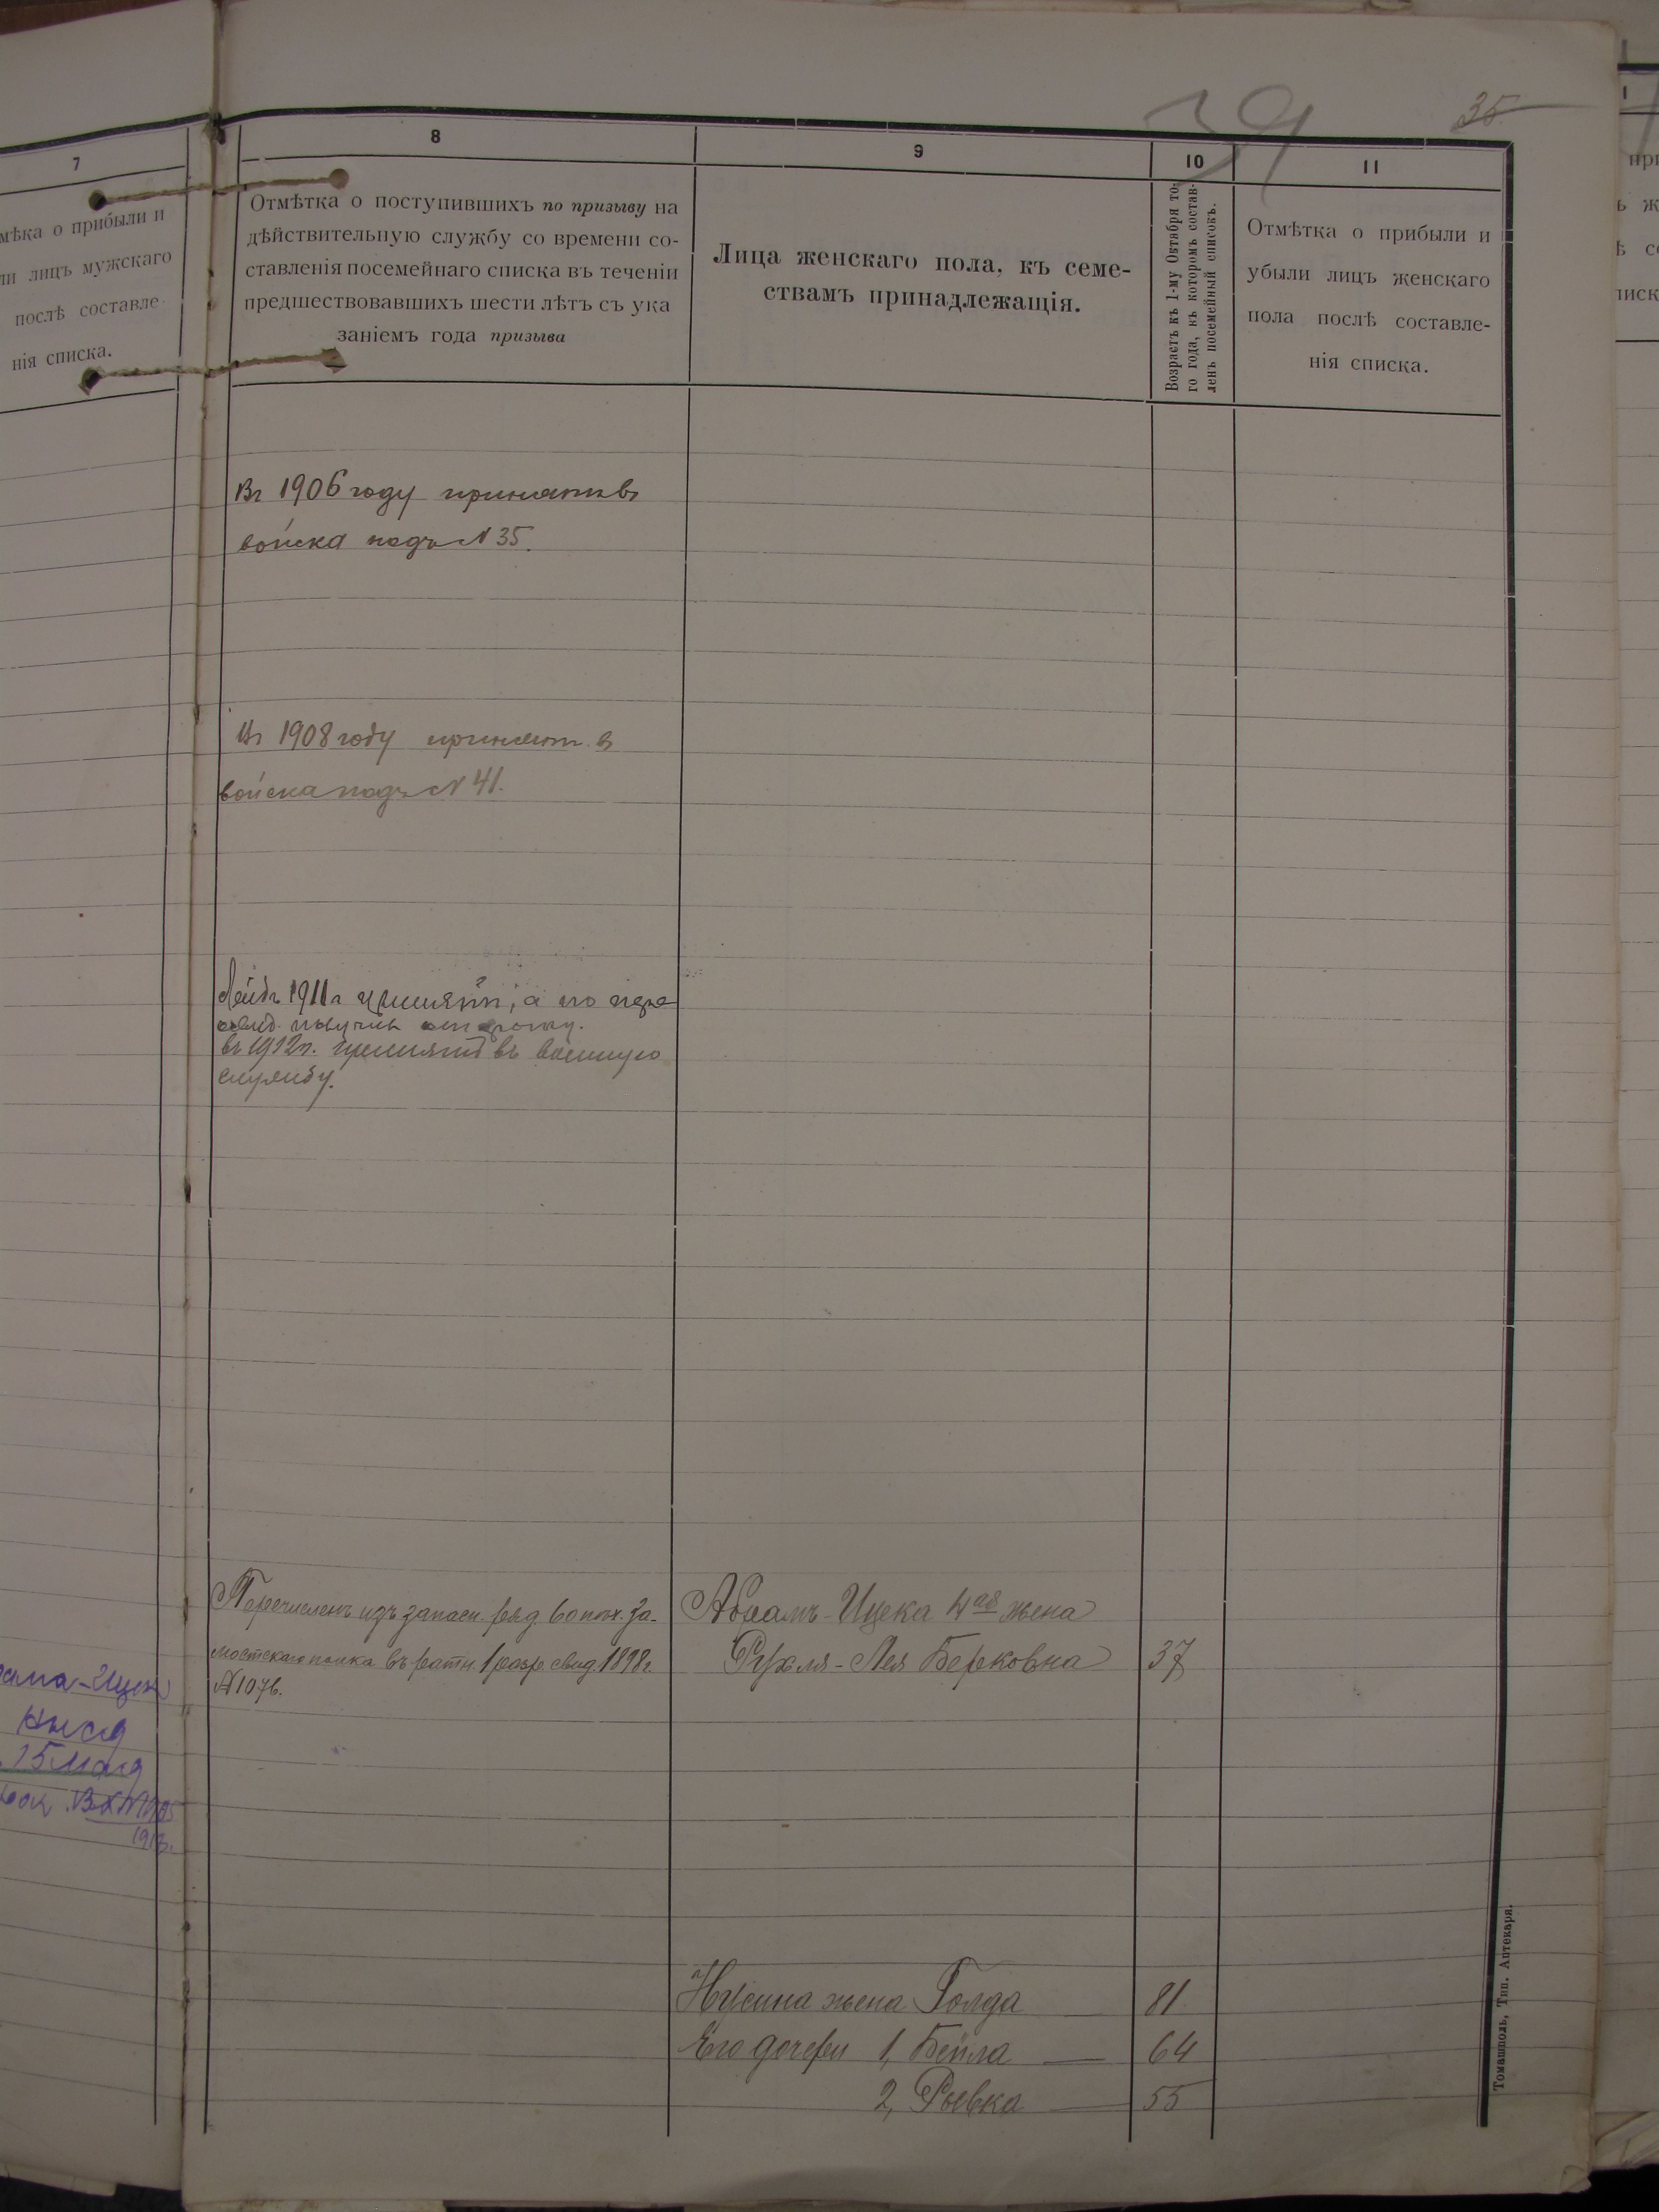 39
35
7
мѣка о прибыли и
ли лицъ мужскаго
послѣ составле-
нія списка.
8
Отмѣтка о поступившихъ по призыву на
дѣйствительную службу со времени со-
ставленія посемейнаго списка въ теченіи
предшествовавшихъ шести лѣтъ съ ука
заніемъ года призыва
9
Лица женскаго пола, къ семе-
ствамъ принадлежащія.
10
Возрастъ къ 1-му Октября то-
го года, въ которомъ состав-
ленъ посемейный списокъ.
11
Отмѣтка о прибыли и
убыли лицъ женскаго
пола послѣ составле-
нія списка.
Въ 1906 году принятъ въ
войска подъ N 35.
Въ 1908 году принят в
войска подъ N 41.
Лейбъ 1911 г принятъ, а по пере
освид. получил отсрочку.
въ 1912 г. принятъ въ военную
службу.
Перечисленъ изъ запасн. ряд. 60 пѣх. За-
мостскаго полка въ ратн. 1 разр. свид. 1898 г.
N 1076.
Абрамъ-Ицека 4ая жена
Рухля-Лея Берковна 37
15 мая
Нусина жена Голда 81
Его дочери 1, Бейла — 64
2, Рывка — 55
Томашполь, Тип. Аптекаря.